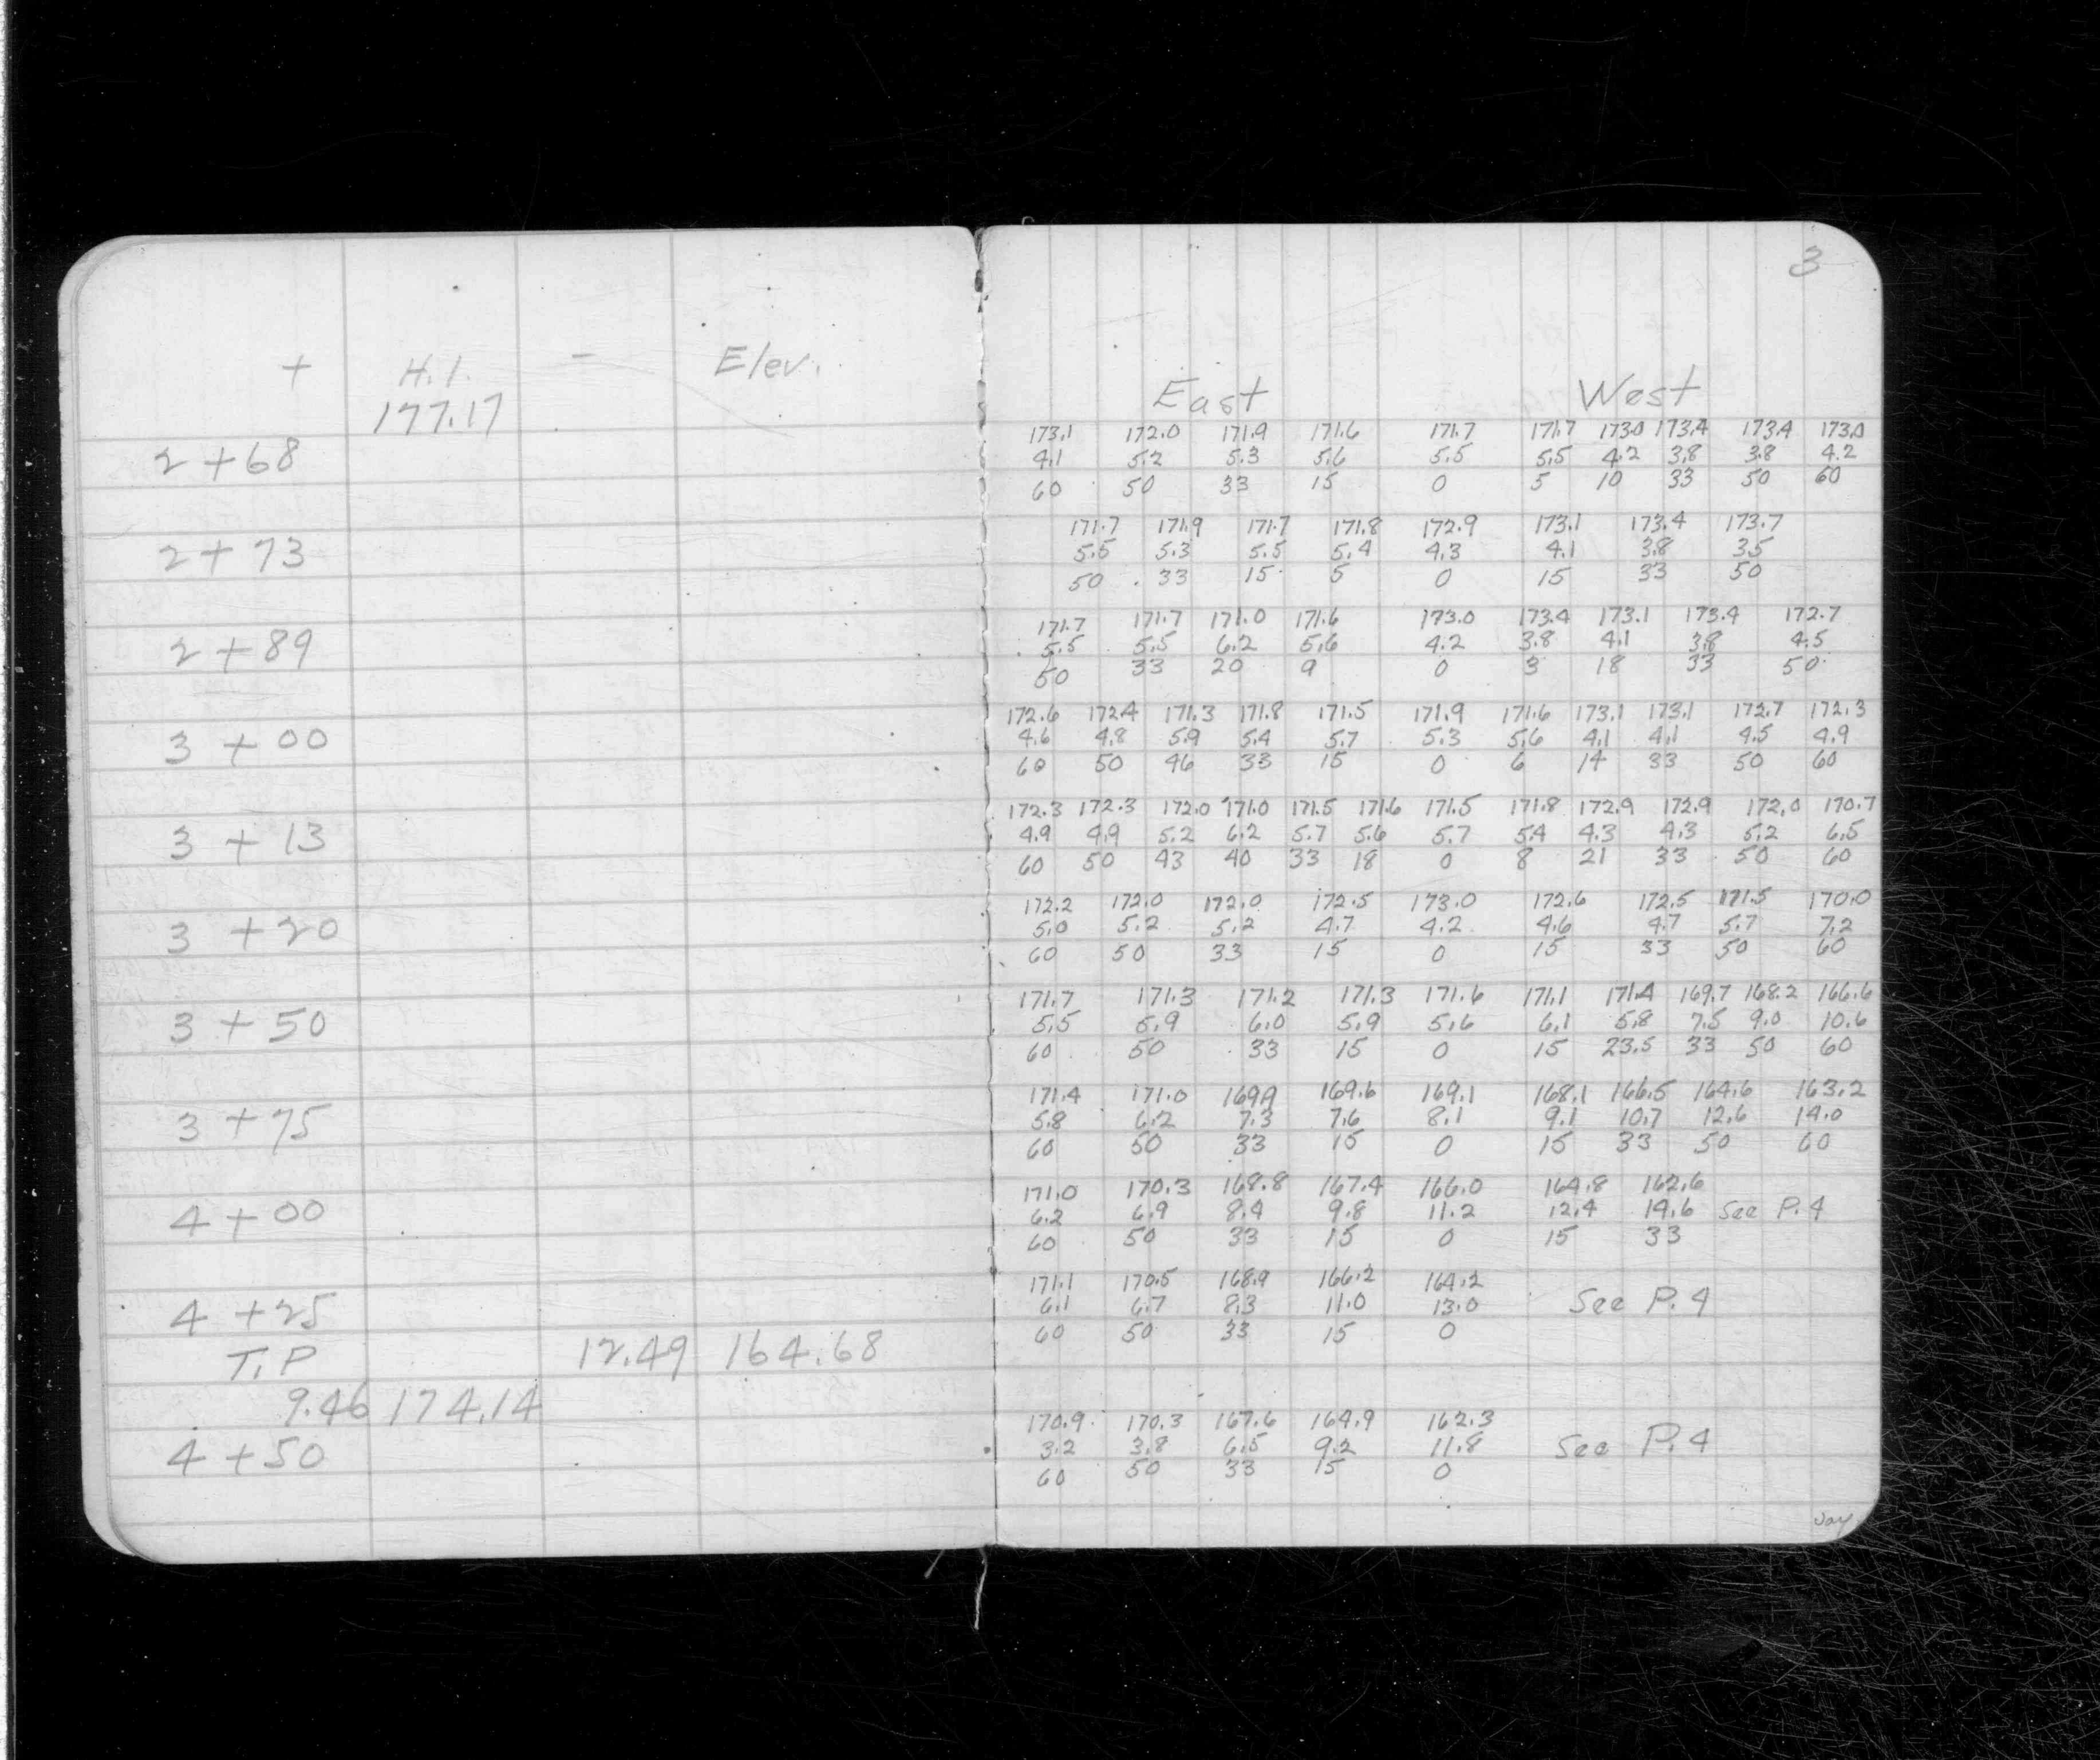 3
+ H.I. - Elev.
177.17
East West
173.1 172.0 171.9 171.6 171.7 171.7 173.0 173.4 173.4 173.0
2+68 4.1 5.2 5.3 5.6 5.5 5.5 4.2 3.8 3.8 4.2
60 50 33 15 0 5 10 33 50 60
171.7 171.9 171.7 171.8 172.9 173.1 173.4 173.7
2+73 5.5 5.3 5.5 5.4 4.3 4.1 3.8 3.5
50 33 15 5 0 15 33 50
171.7 171.7 171.0 171.6 173.0 173.4 173.1 173.4 172.7
2+89 5.5 5.5 6.2 5.6 4.2 3.8 4.1 3.8 4.5
50 33 20 9 0 3 18 33 50
172.6 172.4 171.3 171.8 171.5 171.9 171.6 173.1 173.1 172.7 172.3
3+00 4.6 4.8 5.9 5.4 5.7 5.3 5.6 4.1 4.1 4.5 4.9
60 50 46 33 15 0 6 14 33 50 60
172.3 172.3 172.0 171.0 171.5 171.6 171.5 171.8 172.9 172.9 172.0 170.7
3+13 4.9 4.9 5.2 6.2 5.7 5.6 5.7 5.4 4.3 4.3 5.2 6.5
60 50 43 40 33 18 0 8 21 33 50 60
172.2 172.0 172.0 172.5 173.0 172.6 172.5 171.5 170.0
3+20 5.0 5.2 5.2 4.7 4.2 4.6 4.7 5.7 7.2
60 50 33 15 0 15 33 50 60
171.7 171.3 171.2 171.3 171.6 171.1 171.4 169.7 168.2 166.6
3+50 5.5 5.9 6.0 5.9 5.6 6.1 5.8 7.5 9.0 10.6
60 50 33 15 0 15 23.5 33 50 60
171.4 171.0 169.9 169.6 169.1 168.1 166.5 164.6 163.2
3+75 5.8 6.2 7.3 7.6 8.1 9.1 10.7 12.6 14.0
60 50 33 15 0 15 33 50 60
171.0 170.3 168.8 167.4 166.0 164.8 162.6
4+00 6.2 6.9 8.4 9.8 11.2 12.4 14.6 See P.4
60 50 33 15 0 15 33
171.1 170.5 168.9 166.2 164.2
4+25 6.1 6.7 8.3 11.0 13.0 See P.4
60 50 33 15 0
T.P 12.49 164.68
9.46 174.14
170.9 170.3 167.6 164.9 162.3
4+50 3.2 3.8 6.5 9.2 11.8 See P.4
60 50 33 15 0
Jay